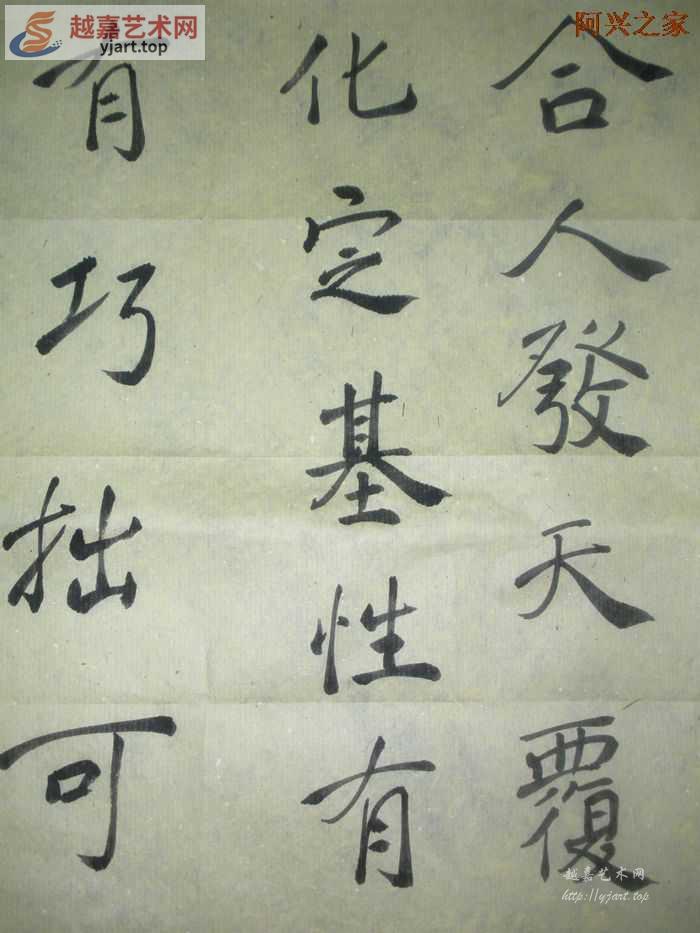 合人發天覆
化定基性有
有巧拙可
越嘉艺术网
yjart.top
阿兴之家
越嘉艺术网
http://yjart.top